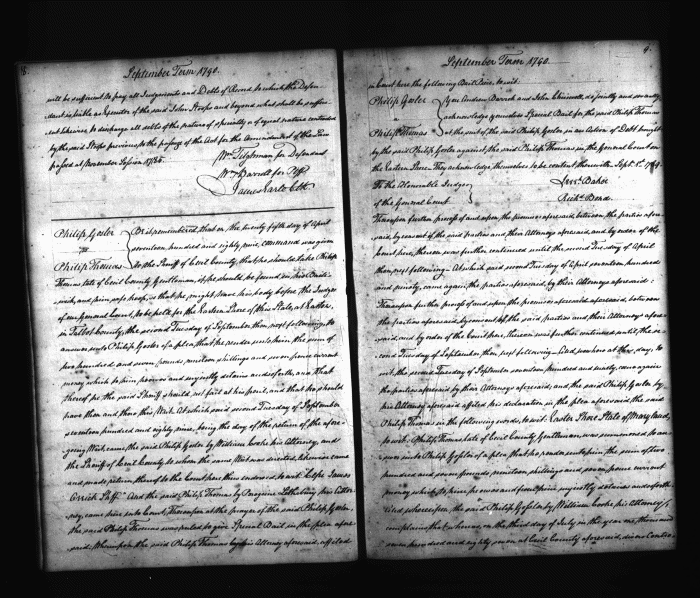 September Term 1790.
will be sufficient to pay all Judgements and Debts of Record to which the Defen-
dant is liable as Executor of the said John Stoops and beyond what shall be suffici-
ent likewise to discharge all debts of the nature of specialty or of equal nature contracted
by the said Stoops previous to the passage of the Act for the Amendment of the Law
passed at November Session 1785.
Wm Tilghman for Defendant
Wm Barroll for Plff
James Earle Clk
Philip Gosler
vs
Philip Thomas
Be it remembered, that on the twenty fifth day of April
seventeen hundred and eighty nine, command was given
to the Sheriff of Cecil County, that he should take Philip
Thomas late of Cecil County Gentleman, if he should be found in his Baili-
wick, and him safe keep, so that he might have his body before the Judges
of our general Court, to be held for the Eastern Shore of this State, at Easton,
in Talbot County, the second Tuesday of September then next following, to
answer unto Philip Gosler of a plea, that he render unto him the sum of
two hundred and seven pounds nineteen shillings and seven pence current
money which to him he owes and unjustly detains and so forth, and that
thereof he the said Sheriff should not fail at his peril, and that he should
have then and there this Writ. At which said second Tuesday of September
seventeen hundred and eighty nine, being the day of the return of the afore-
going Writ, came the said Philip Gosler by William Cooke his Attorney, and
the Sheriff of Cecil County to whom the same Writ was directed, likewise came
and made return thereof to the Court here thus endorsed, to wit. Cepi James
Orrick Shff. And the said Philip Thomas by Peregrine Lethrbury his Attor-
ney, came here into Court, Thereupon at the prayer of the said Philip Gosler,
the said Philip Thomas was ruled to give Special Bail in the plea afore-
said, Whereupon the said Philip Thomas by his Attorney aforesaid, afiled
4.
September Term 1790.
in Court here the following Bail Piece, to wit.
Philip Gosler
vs
Philip Thomas
You and John jointly and severally
acknowledge yourselves Special Bail for the said Philip Thomas
at the suit of the said Philip Gosler in an Action of Debt brought
by the said Philip Gosler against the said Philip Thomas in the General Court on
the Eastern Shore. They acknowledge themselves to be content therewith Septr.
To the Honorable Judges
of the General Court
Richd. Bond
Thereupon further process of and upon the premises aforesaid, between the parties afore-
said, by consent of the said parties and their Attornies aforesaid, and by order of the
Court here, thereon was further continued until the second Tuesday of April
then next following. At which said second Tuesday of April seventeen hundred
and ninety, came again the parties aforesaid, by their Attornies aforesaid:
Thereupon further process of and upon the premises aforesaid, between
the parties aforesaid, by consent of the said parties and their Attornies afore-
said, and by order of the Court here, thereon was further continued until the se-
cond Tuesday of September then next following. And now here at this day, to
wit, the second Tuesday of September seventeen hundred and ninety, came again
the parties aforesaid by their Attornies aforesaid, and the said Philip Gosler by
his Attorney aforesaid afiled his declaration in the plea aforesaid, the said
Philip Thomas in the following words, to wit. Eastern Shore State of Maryland,
to wit. Philip Thomas, late of Cecil County Gentleman, was summoned to an-
swer unto Philip Gosler of a plea that he render unto him the sum of two
hundred and seven pounds, nineteen shillings and seven pence current
money which to him he owes and from him unjustly detains and so forth
And whereupon, the said Philip Gosler by William Cooke his Attorney,
complains that whereas, on the third day of July in the year one thousand
seven hundred and eighty seven at Cecil County aforesaid, divers Contro-